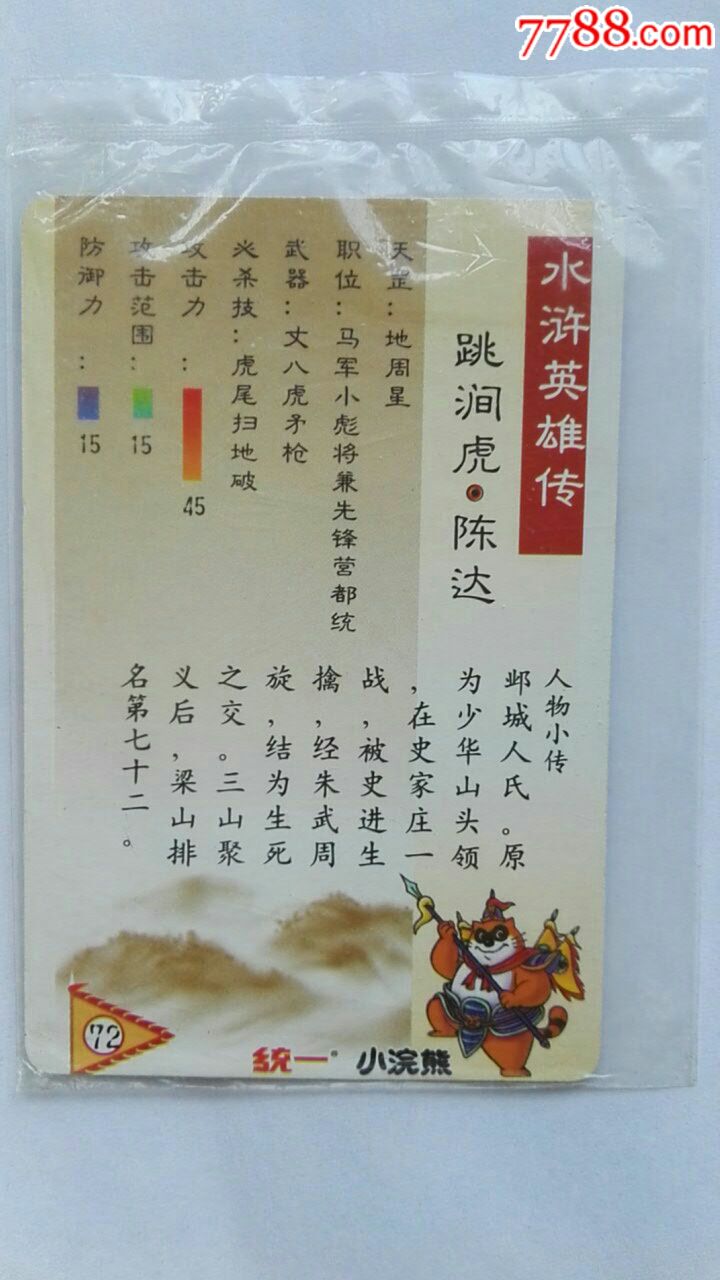 7788.com
水浒英雄传
跳涧虎·陈达
天罡:地周星
职位:马军小彪将兼先锋营都统
武器:丈八虎矛枪
必杀技:虎尾扫地破
攻击力:
45
攻击范围:
15
防御力:
15
人物小传
邺城人氏。原
为少华山头领
,在史家庄一
战,被史进生
擒,经朱武周
旋,结为生死
之交。三山聚
义后,梁山排
名第七十二。
72
统一® 小浣熊